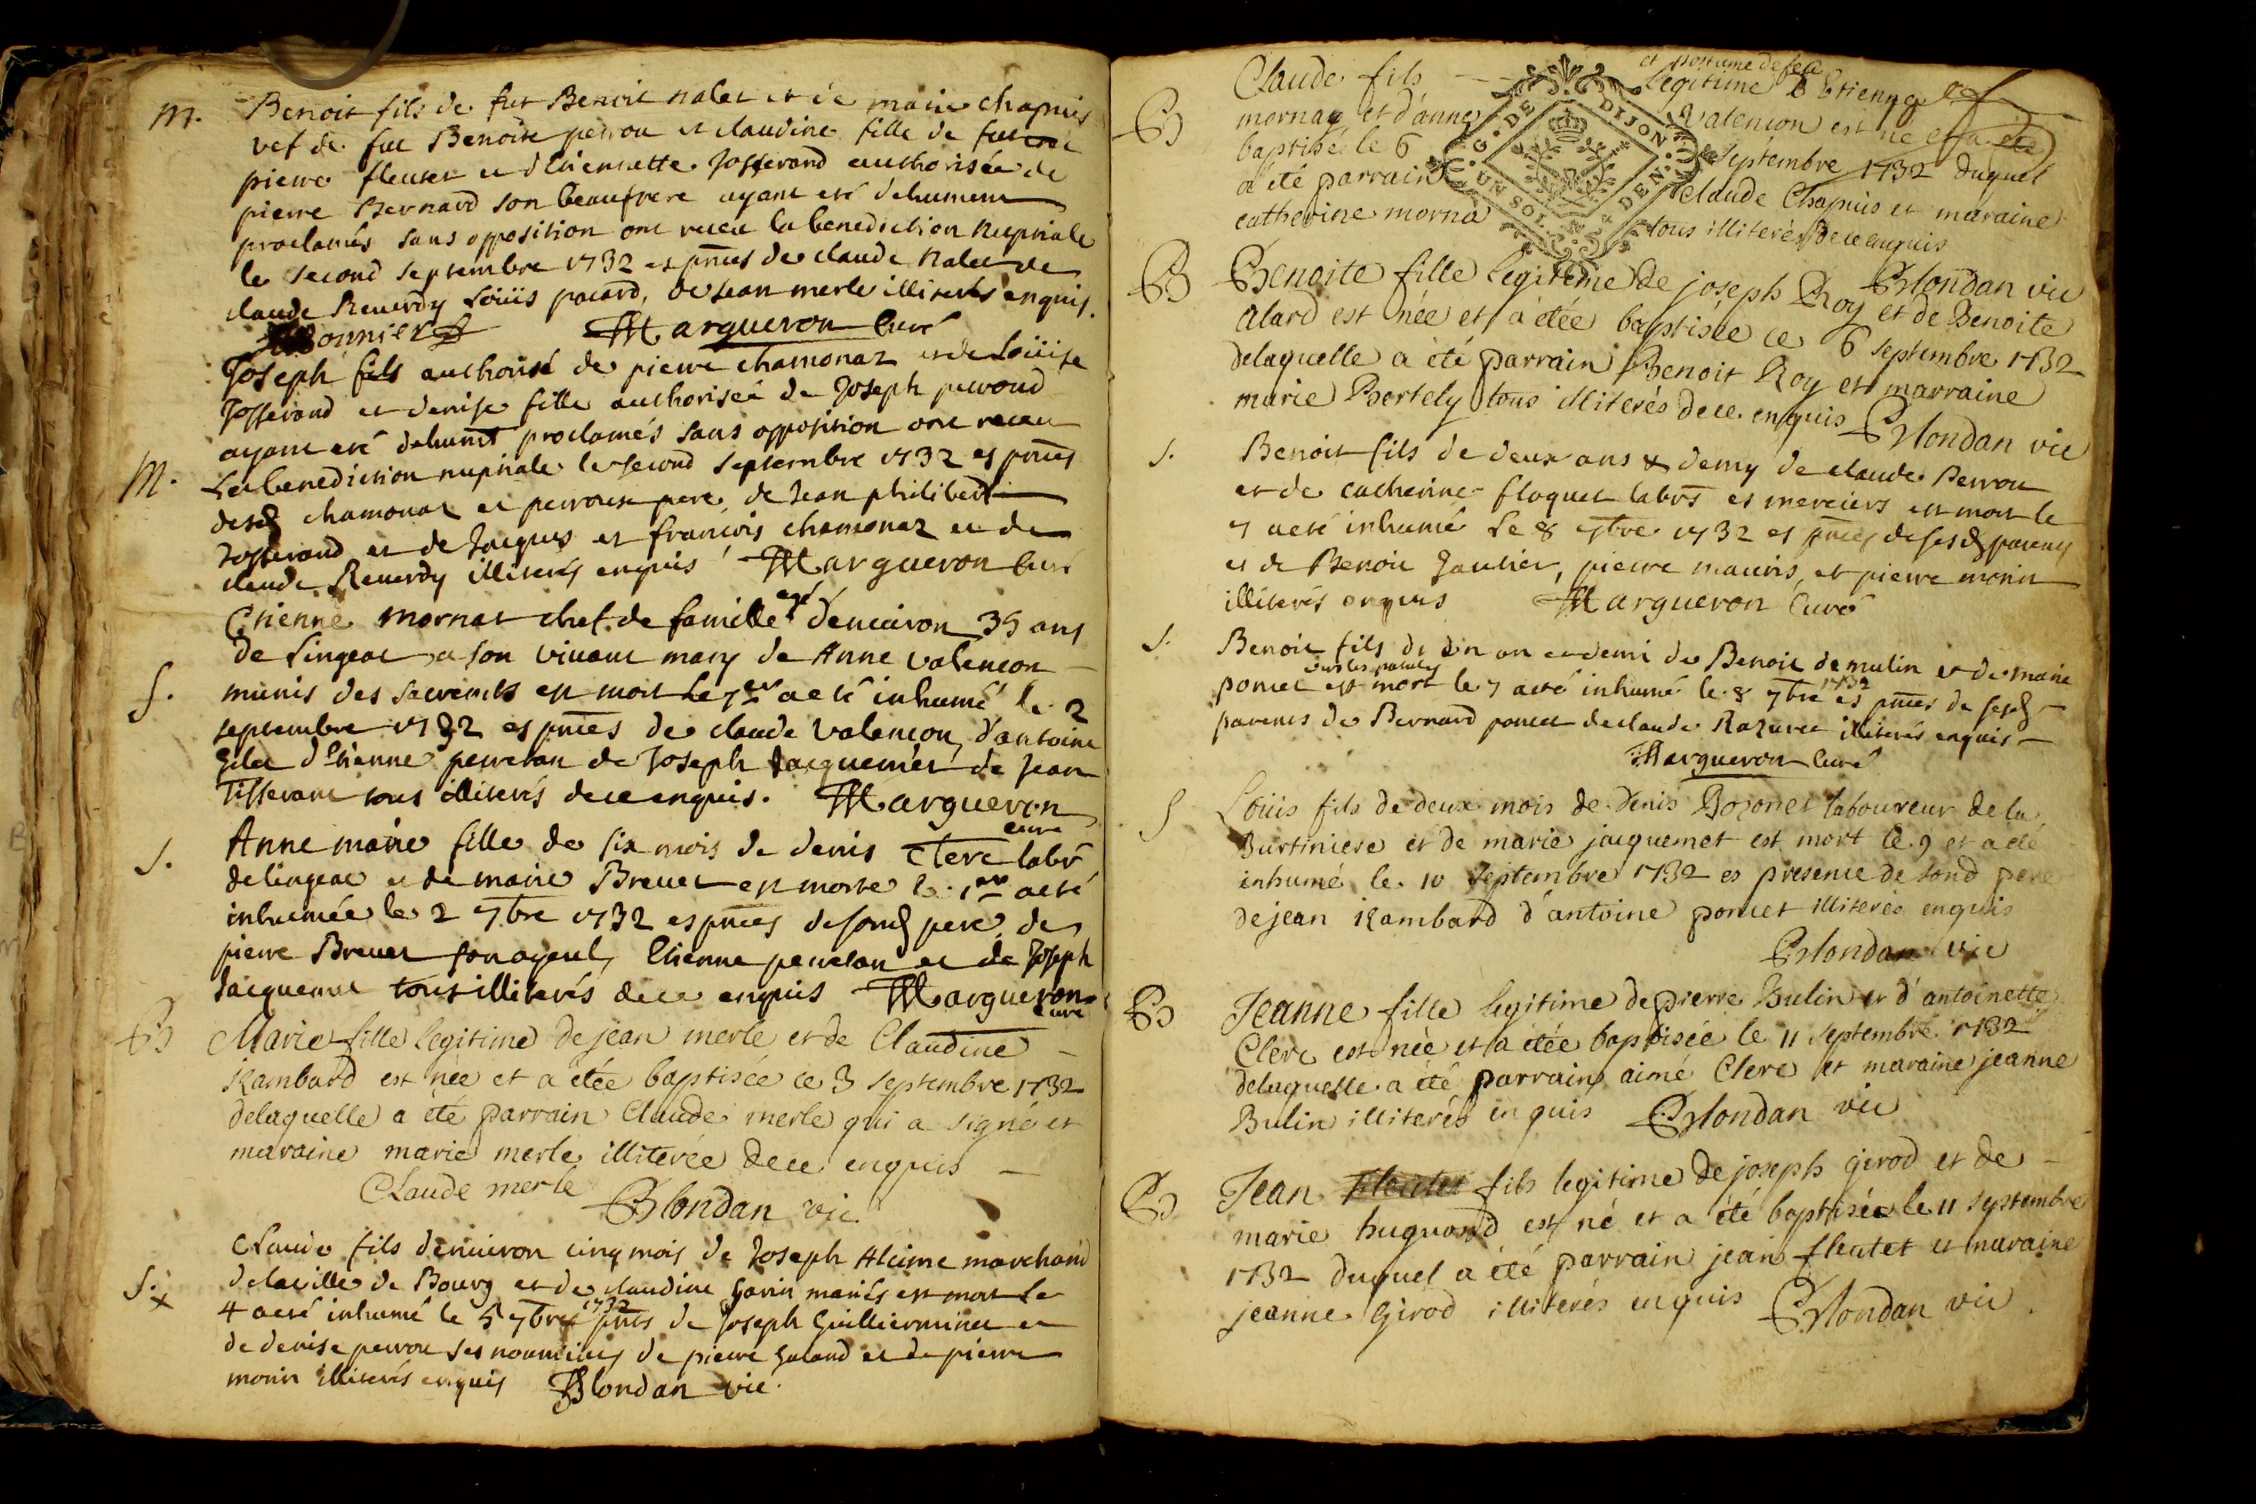 M. Benoit fils de fut Benoit nalet et de marie chapuis
vef de fue Benoite perrou et claudine fille de fut
pierre fleutet et d'Etiennette Josserand authorisée de
pierre Bernard son beaufrere ayant eté dehument
proclamés sans opposition ont receu la benediction nuptiale
le second septembre 1732 es pnces de claude nalet de
claude Reverdy Loüis pacard, de Jean merle illiterés enquis.
Bonnier Margueron Curé
Joseph fils authorisé de pierre chamonaz et de Loüise
Josserand et denise fille authorisée de Joseph perroud
ayant eté dehumt proclamés sans opposition ont receu
M. La benediction nuptiale le second septembre 1732 es pnces
desd chamonaz et perrouse pere, de Jean philibert
Josserand et de Jacques et francois chamonaz et de
claude Reverdy illiterés enquis Margueron Curé
Etienne mornat chef de famille agé d'enuiron 35 ans
de Lingeat a son viuant mary de Anne valencon
S. munis des sacremts est mort le 1er a eté inhumé le 2
septembre 1732 es pnces de claude valencon, d'antoine
d'Etienne perretan de Joseph Jacquemet de Jean
Tisserant tous illiterés de ce enquis. Margueron
curé
S. Anne marie fille de six mois de denis Clerc labr
de lingeat et de marie Brevet est morte le 1er a eté
inhumée le 2 7bre 1732 es pnces de sond pere, de
pierre Brevet son ayeul, Etienne perretan et de Joseph
Jacquemet tous illiterés de ce enquis Margueron
curé
B Marie fille legitime de jean merle et de Claudine
Rambard est née et a étée baptisée ce 3 septembre 1732
delaquelle a été parrain Claude merle qui a signé et
maraine marie merle illiterée de ce enquis
CLaude merle Blondan vic
Claude fils d'enuiron cinq mois de Joseph Aleime marchand
S. x delaville de Bourg et de claudine Garin mariés est mort le
4 a eté inhumé le 5 7bre 1732 es pnces de Joseph Guillierminet et
de denise perrou ses nourriciers de pierre Galand et de pierre
morin illiterés enquis Blondan vic.
Claude fils et postume de feu
legitime d'Etienne
B mornay et d'anne valencon est né et a été
baptisé le 6 septembre 1732 duquel
a été parrain claude Chapuis et maraine
catherine morna tous illiterés de ce enquis
G. DE DIJON.
UN SOL. DEN.
Blondan vic
B Benoite fille legitime de joseph Roy et de Benoite
Alard est née et a étée baptisée ce 6 septembre 1732
delaquelle a été parrain Benoit Roy et marraine
marie Bertely tous illiterés de ce enquis Blondan vic
S. Benoit fils de deux ans & demy de claude Perrou
et de catherine floquet labrs es merciers est mort le
7 a eté inhumé Le 8 7bre 1732 es pnces de sesd parens
et de Benoit Gautier, pierre mauris, et pierre morin
illiterés enquis Margueron Curé
S. Benoit fils de d'un an et demi de Benoit demulin et de marie
poncet est mort le 7 a eté inhumé le 8 7bre 1732 es pnces de sesd
parents de Bernard poncet de claude Razuret illiterés enquis
Margueron Curé
S Loüis fils de deux mois de denis Bozonet laboureur de la
Burtiniere et de marie jacquemet est mort le 9 et a été
inhumé le 10 septembre 1732 es presence de sond pere
de jean Rambard d'antoine poncet illiterés enquis
Blondan vic
B Jeanne fille legitime de pierre Bulin et d'antoinette
Clerc est née et a étée baptisée le 11 septembre 1732
delaquelle a été parrain aimé Clerc et maraine jeanne
Bulin illiterés enquis Blondan vic
B Jean fils legitime de joseph girod et de
marie huguond est né et a été baptisée le 11 septembre
1732 duquel a été parrain jean fleutet et maraine
jeanne girod illiterés enquis Blondan vic.